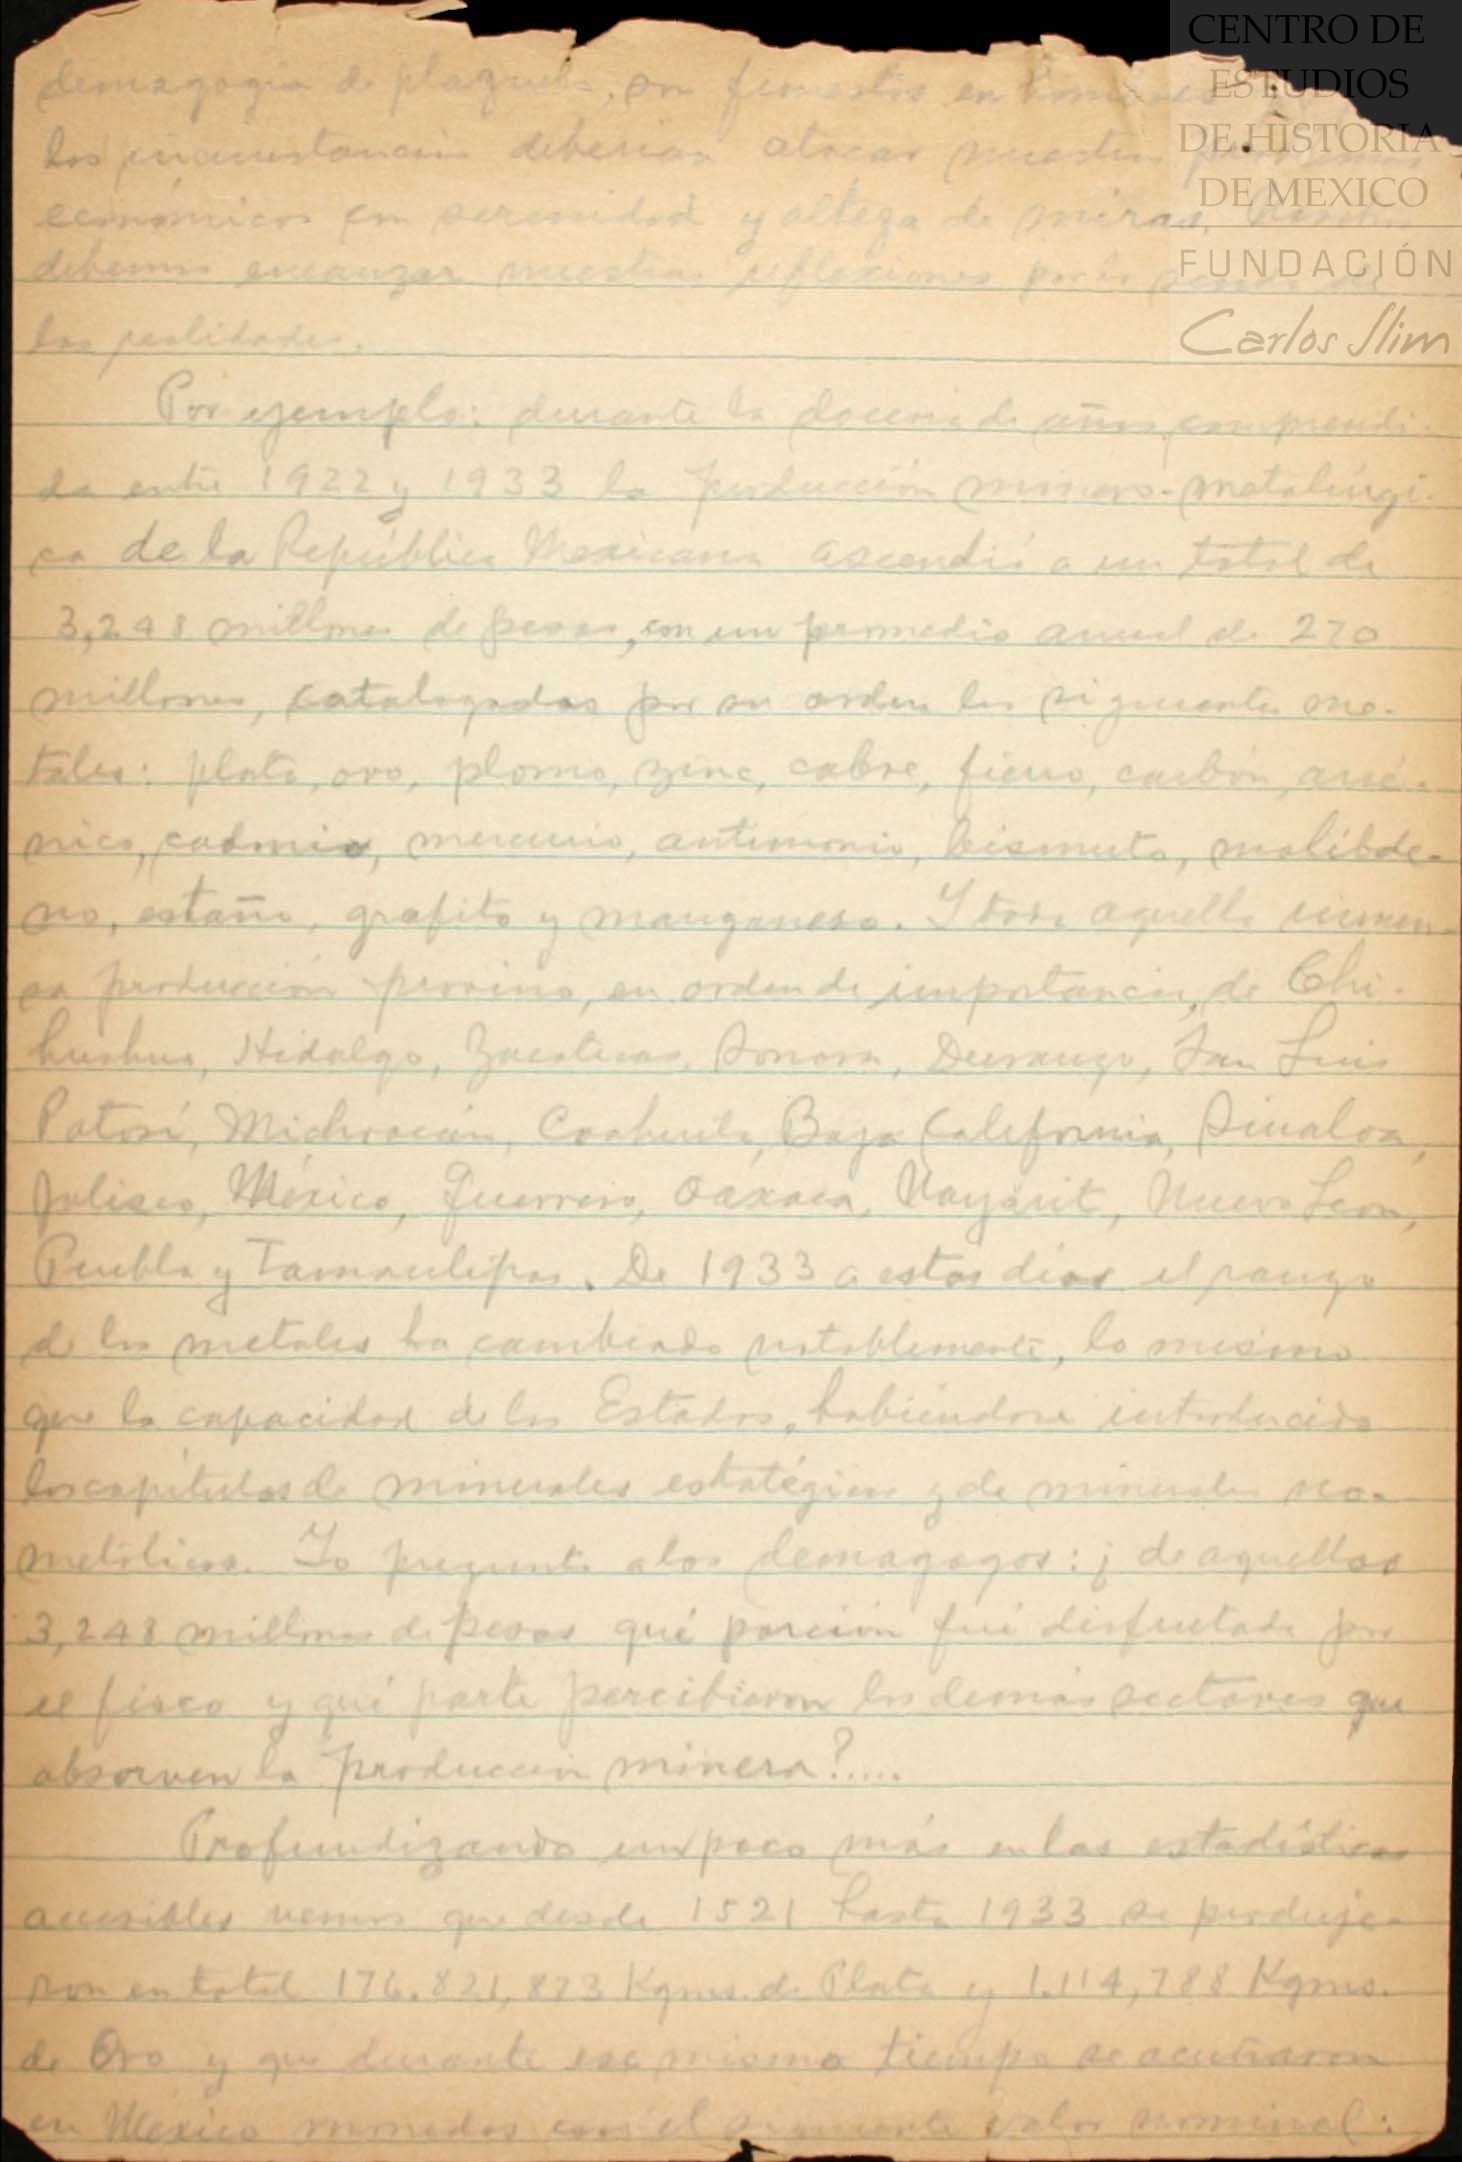 CENTRO DE
ESTUDIOS
DE HISTORIA
DE MEXICO
FUNDACIÓN
Carlos Slim
demagogia de plazuela, en
las circunstancias deberían atacar nuestros
económicos con serenidad y alteza de miras.
debemos encauzar nuestras reflexiones por la senda de
las realidades.
Por ejemplo: durante la docena de años comprendi-
da entre 1922 y 1933 la producción minero-metalúrgi-
ca de la República Mexicana ascendió a un total de
3,248 millones de pesos, con un promedio anual de 270
millones, catalogados por su orden los siguientes me-
tales: plata, oro, plomo, zinc, cobre, fierro, carbón, arsé-
nico, cadmio, mercurio, antimonio, bismuto, molibde-
no, estaño, grafito y manganeso. Y toda aquella inmen-
sa producción provino, en orden de importancia, de Chi-
huahua, Hidalgo, Zacatecas, Sonora, Durango, San Luis
Potosí, Michoacán, Coahuila, Baja California, Sinaloa,
Jalisco, México, Guerrero, Oaxaca, Nayarit, Nuevo León,
Puebla y Tamaulipas. De 1933 a estos días el rango
de los metales ha cambiado notablemente, lo mismo
que la capacidad de los Estados, habiéndose introducido
los capítulos de minerales estratégicos y de minerales no-
metálicos. Yo pregunto a los demagogos: ¿de aquellos
3,248 millones de pesos qué porción fué disfrutada por
el fisco y qué parte percibieron los demás sectores que
absorven la producción minera?.....
Profundizando un poco más en las estadísticas
accesibles vemos que desde 1521 hasta 1933 se produje-
ron en total 176.821,873 Kgms. de Plata y 1.114,788 Kgms.
de Oro y que durante ese mismo tiempo se acuñaron
en México monedas con el siguiente valor nominal: